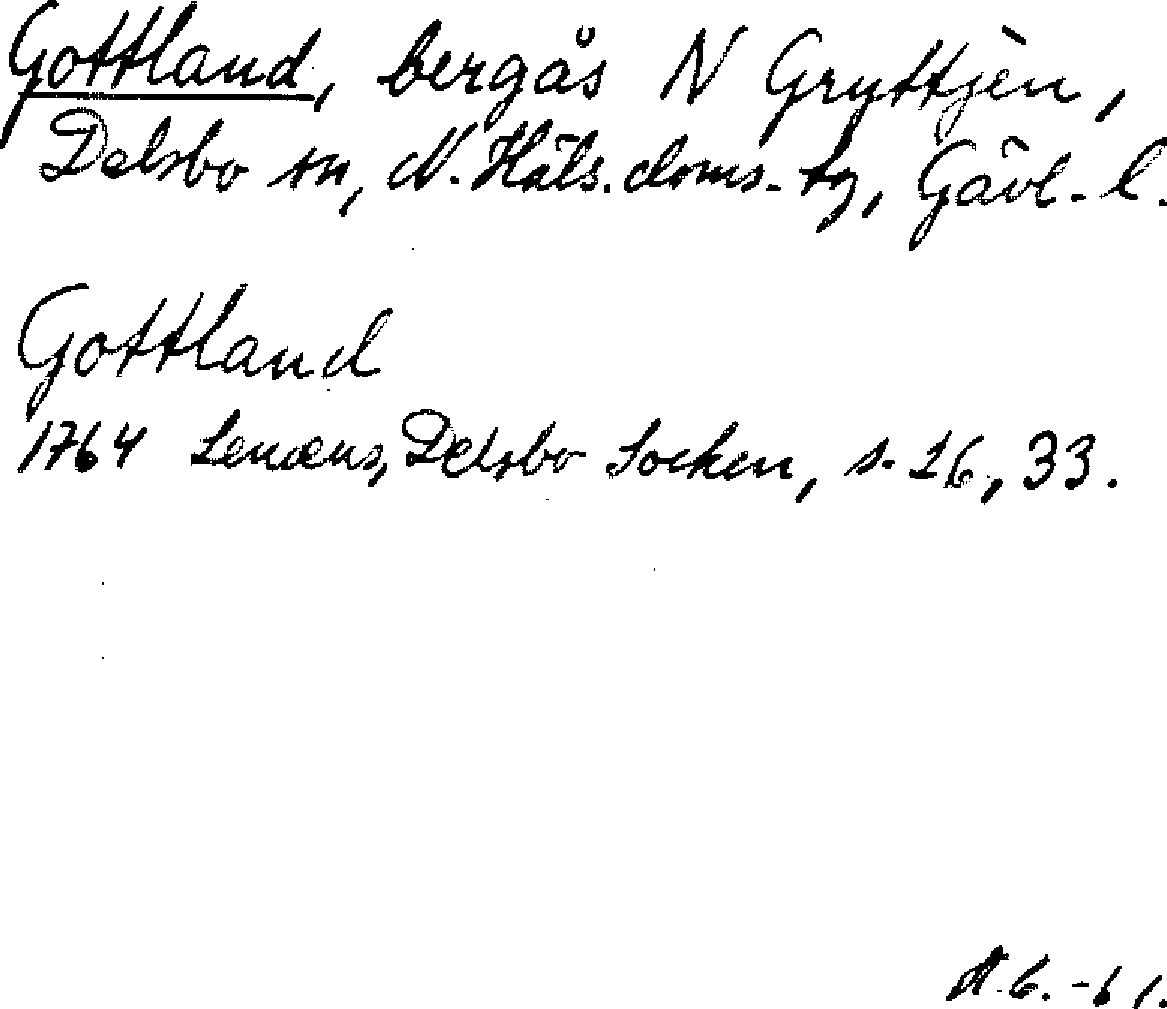 Gottland, bergås N Gryttjèn,
Delsbo sn, N. Häls. doms. tg, Gävl. l.
Gottland
1764 Lenæus, Delsbo Socken, s. 26, 33.
A.G. -61.